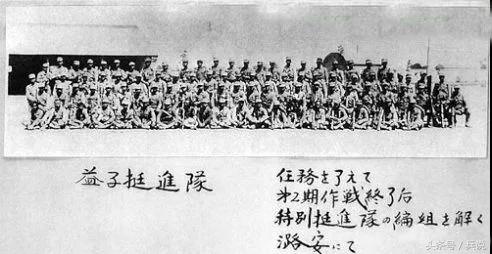 益子挺進隊
任務を了えて
才2期作戦終了后
特別挺進隊の編組を解く
潞安にて
头条号/兵说